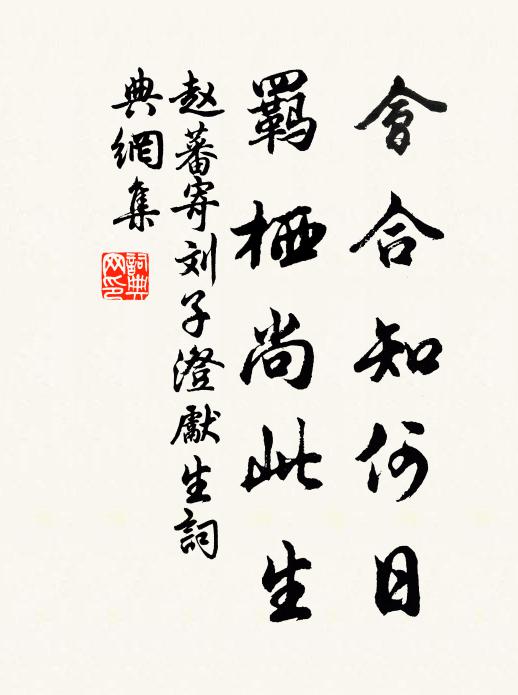 會合知何日
羈栖尚此生
赵蕃寄刘子澄獻生詞
典網集
詞典网印